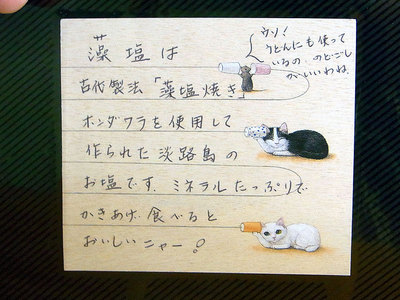 藻塩は
古代製法「藻塩焼き」
ホンダワラを使用して
作られた淡路島の
お塩です。ミネラルたっぷりで
かきあげ食べると
おいしいニャー!
ウソ!
うどんにも使って
いるの。のどごし
がいいわね。